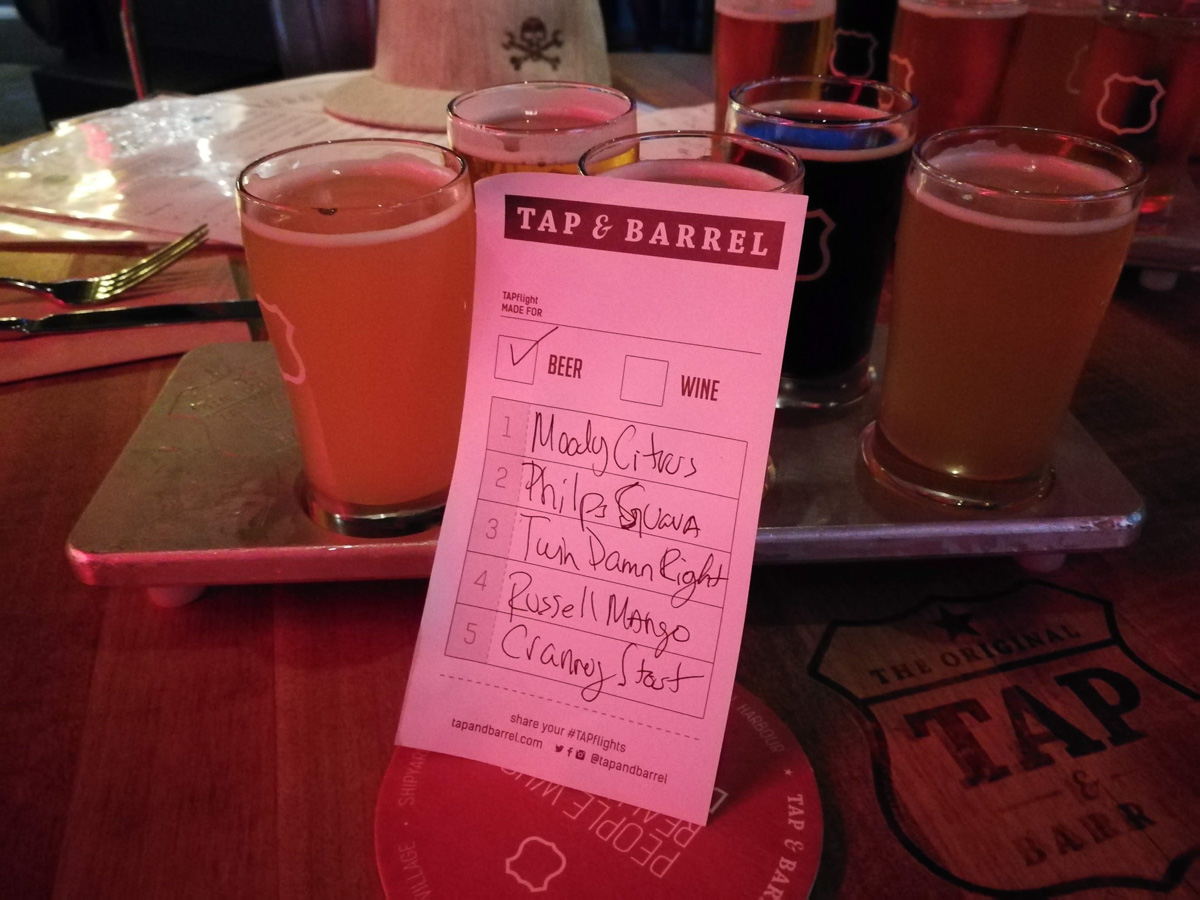 TAP & BARREL
TAPflight
MADE FOR
BEER
WINE
1 Moody Citrus
2 Philps Guava
3 Twin Damn Right
4 Russell Mango
5 Cranney Stout
share your #TAPflights
tapandbarrel.com @tapandbarrel
THE ORIGINAL
TAP
&
BARR
PEOPLE WHO
VILLAGE
SHIPYAR
HARBOUR
TAP & BAR